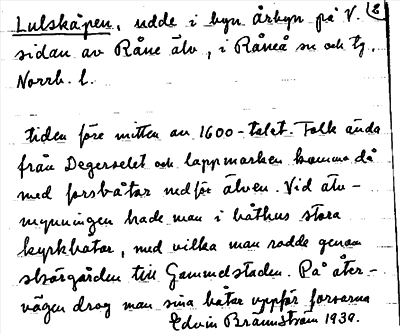 Lulskäpen, udde i byn Årbyn på V. 2
sidan av Råne älv, i Råneå sn och tg,
Norrb. l.
tiden före mitten av 1600-talet. Folk ända
från Degerselet och lappmarken kommo då
med forsbåtar nedför älven. Vid älv-
mynningen hade man i båthus stora
kyrkbåtar, med vilka man rodde genom
skärgården till Gammelstaden. På åter-
vägen drog man sina båtar uppför forsarna
Edvin Brännström 1939.